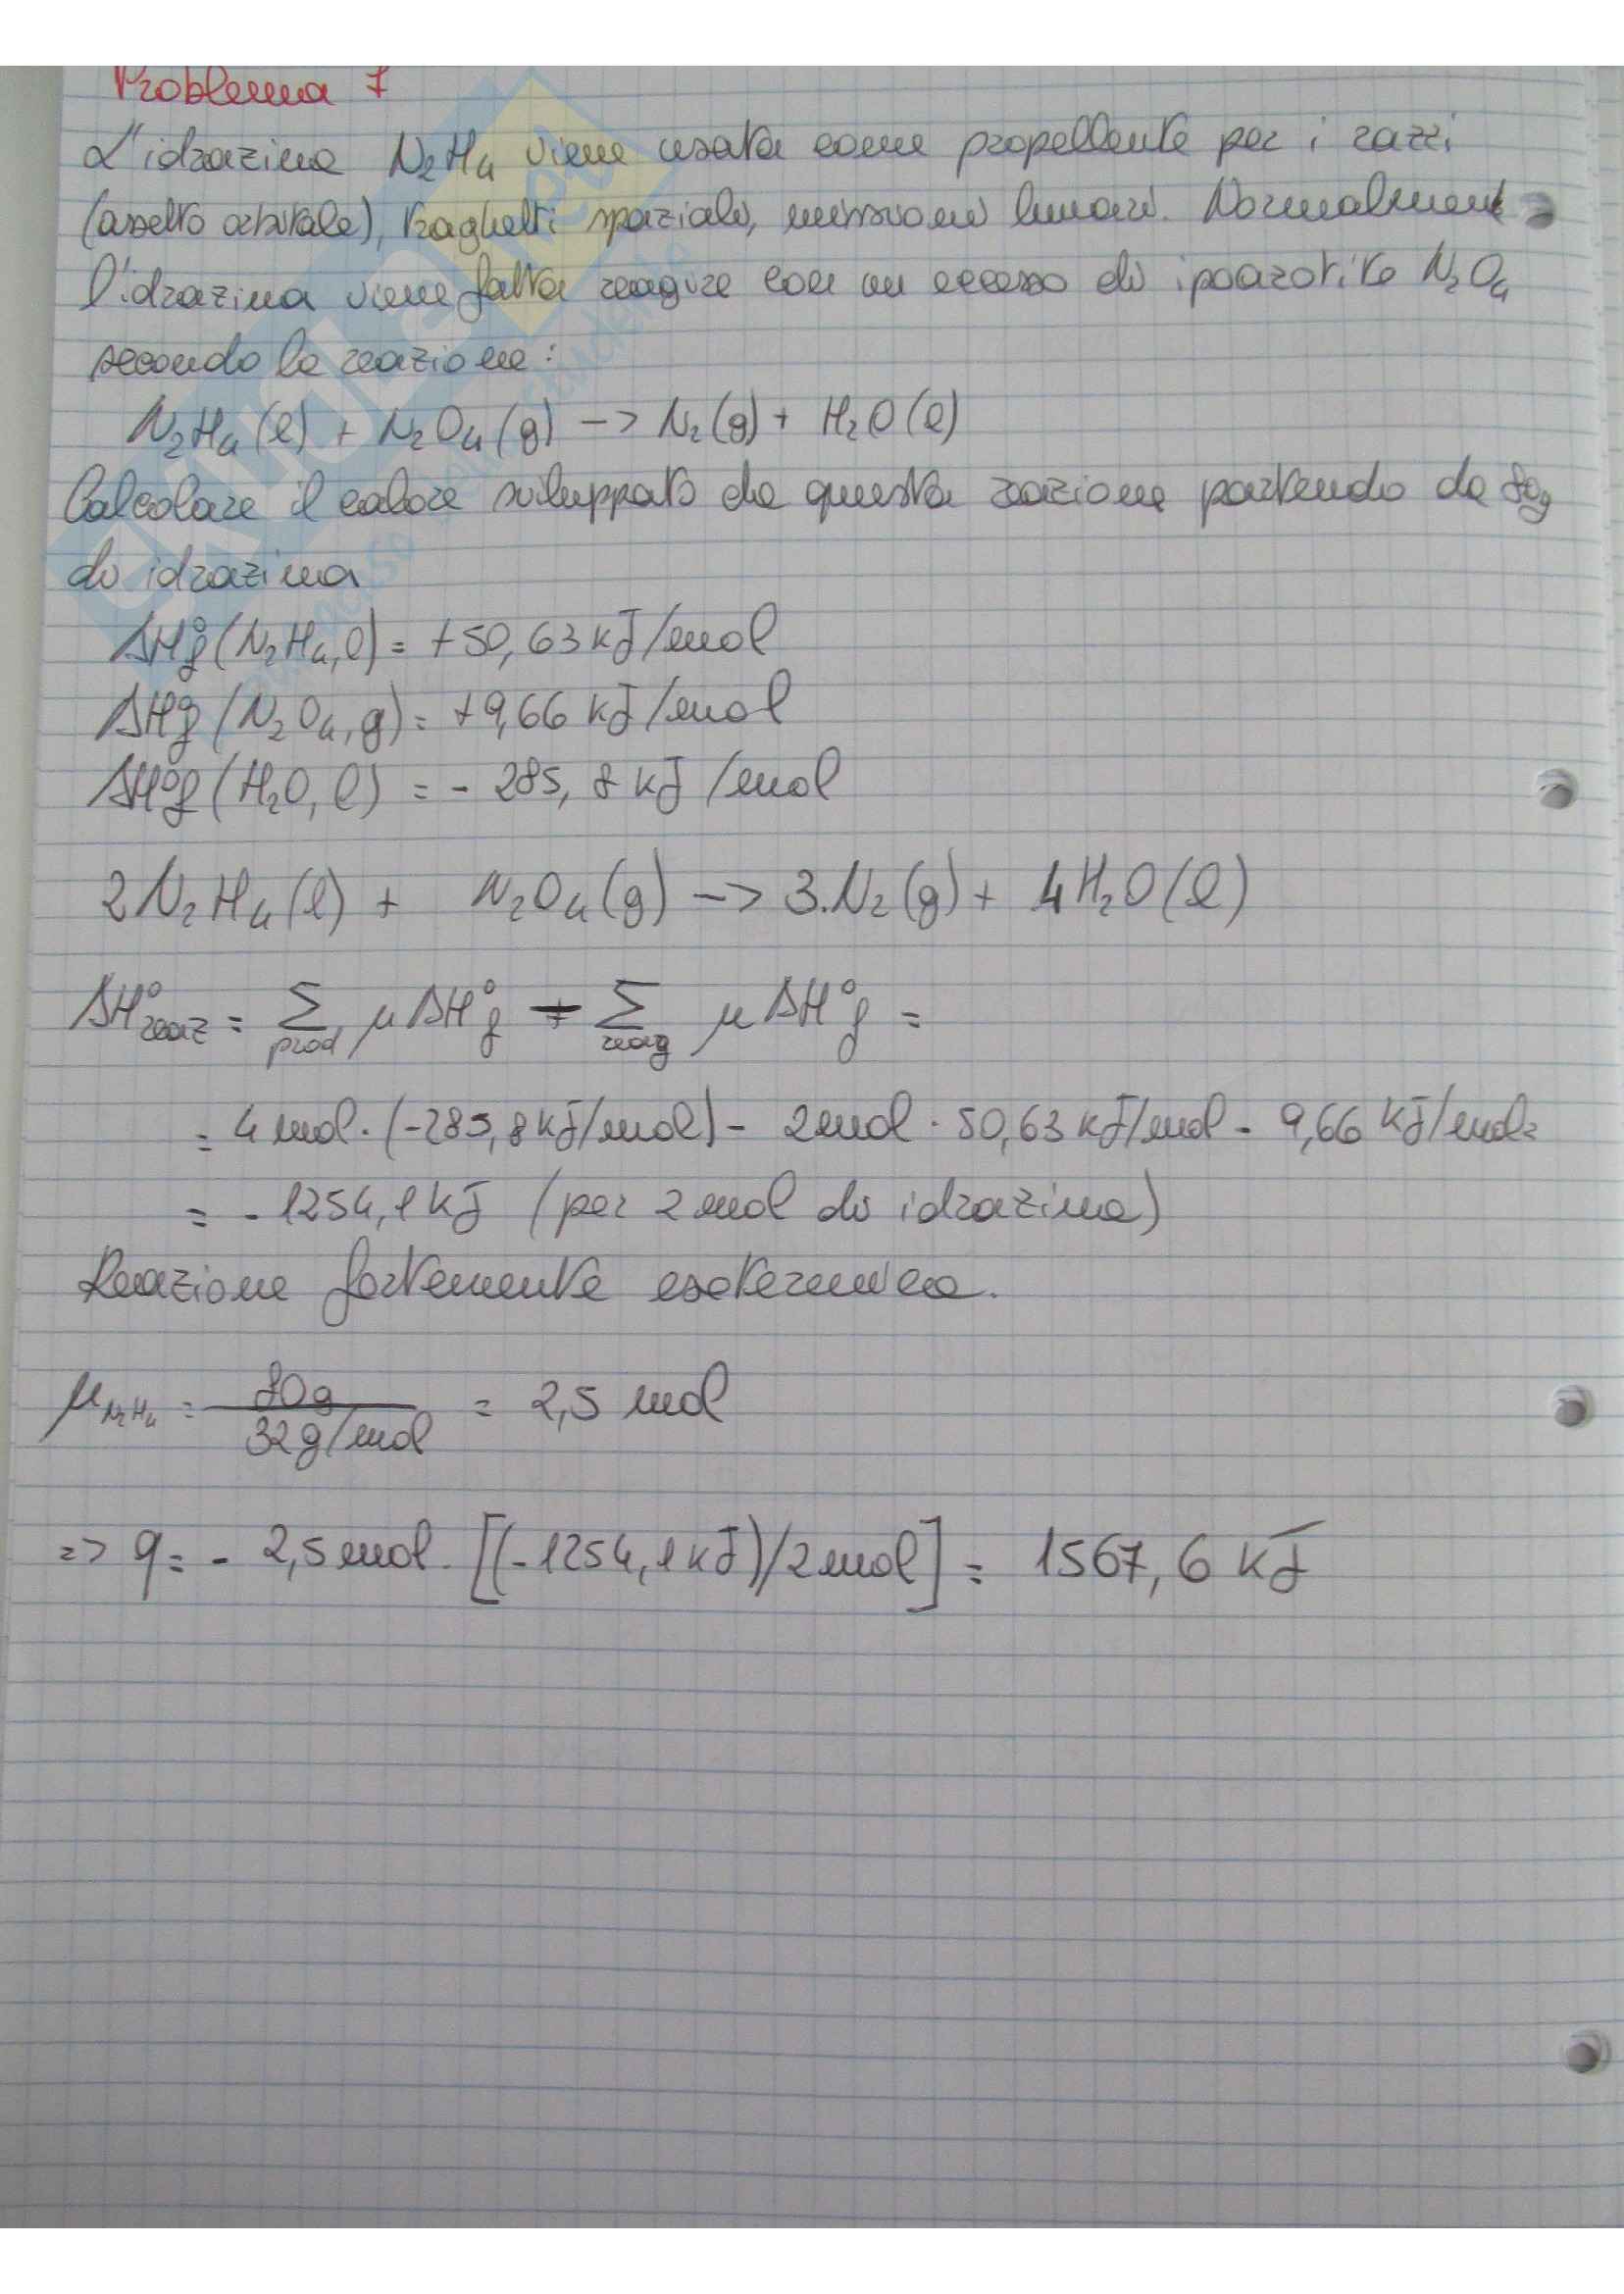 Problema 7
L'idrazina N₂H₄ viene usata come propellente per i razzi
(assetto orbitale), traghetti spaziali, missioni lunari. Normalment
l'idrazina viene fatta reagire con un eccesso di ipoazotite N₂O₄
secondo la reazione:
N₂H₄(l) + N₂O₄(g) -> N₂(g) + H₂O(l)
Calcolare il calore sviluppato da questa reazione partendo da 80g
di idrazina
ΔH°f(N₂H₄,l) = +50,63 kJ/mol
ΔHf(N₂O₄,g) = +9,66 kJ/mol
ΔH°f(H₂O,l) = - 285,8 kJ/mol
2N₂H₄(l) + N₂O₄(g) -> 3.N₂(g) + 4H₂O(l)
ΔH°reaz = Σprod μΔH°f - Σreag μΔH°f =
= 4mol·(-285,8kJ/mol) - 2mol·50,63kJ/mol - 9,66 kJ/mol=
= -1254,1kJ (per 2mol di idrazina)
Reazione fortemente esotermica.
μN₂H₄ = 80g / 32g/mol = 2,5 mol
=> q = - 2,5mol·[(-1254,1kJ)/2mol] = 1567,6 kJ